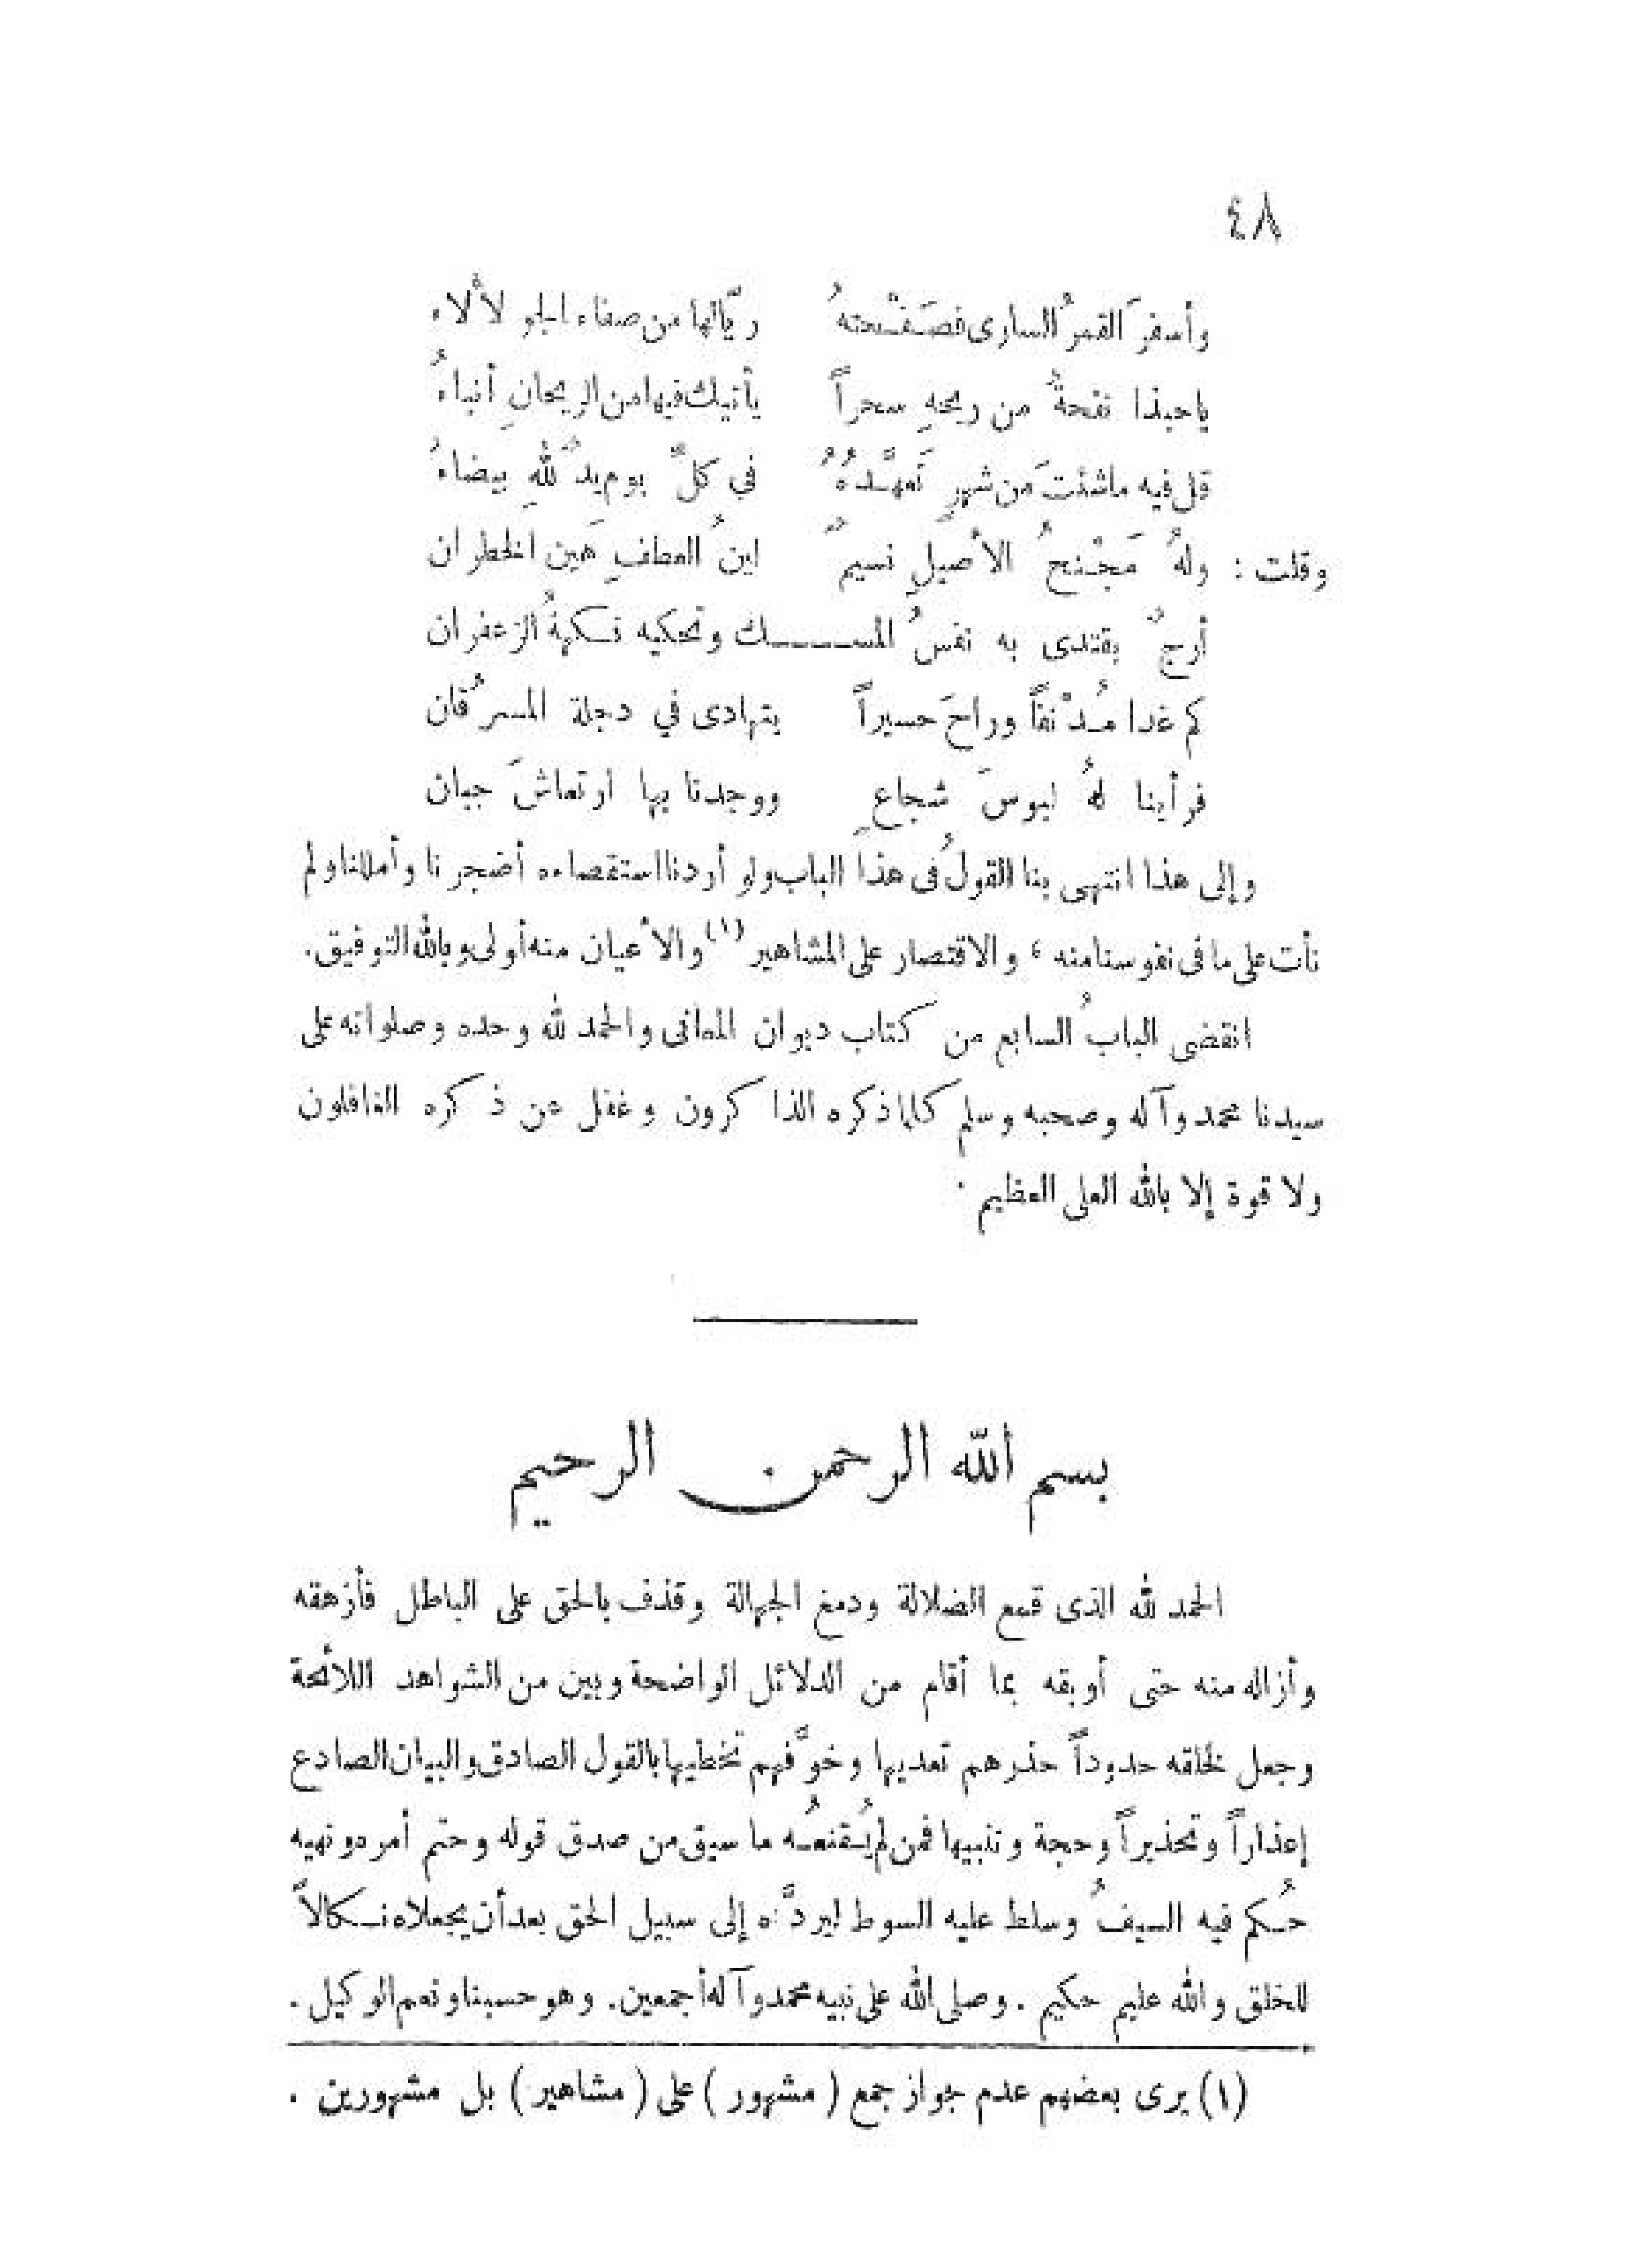 ٤٨
وأسفرَ القمرُ السارى فصَفْحتهُ ريّا لها من صفاء الجو لألاء
يا حبذا نفحةٌ من ريحهِ سحراً يأتيك فيها من الريحانِ أنباءُ
قل فيه ما شئتَ من شهرٍ تَعهَّدهُ في كلِّ يوم يدٌ للهِ بيضاءُ
وقلت : ولهُ مَجْنحُ الأصيلِ نسيمٌ لينُ العطفِ هَين الخطران
أرجٌ يقتدى به نفسُ المســـــك وتحكيه نكهةُ الزعفران
كم غدا مُدْنفاً وراحَ حسيراً يتهادى في دجلة المسرُقان
فرأينا لهُ لبوسَ شجاعٍ ووجدنا بها ارتعاشَ جبان
وإلى هذا انتهى بنا القولُ فى هذا الباب ولو أردنا استقصاءه أضجرنا وأمللنا ولم
نأت على ما فى نفوسنا منه ، والاقتصار على المشاهير (١) والأعيان منه أولى وبالله التوفيق .
انقضى البابُ السابع من كتاب ديوان المعانى والحمد لله وحده وصلواته على
سيدنا محمد وآله وصحبه وسلم كلما ذكره الذاكرون وغفل عن ذكره الغافلون
ولا قوة إلا بالله العلى العظيم .
بسم الله الرحمن الرحيم
الحمد لله الذى قمع الضلالة ودمغ الجهالة وقذف بالحق على الباطل فأزهقه
وأزاله منه حتى أوبقه بما أقام من الدلائل الواضحة وبين من الشواهد اللائحة
وجعل لخلقه حدوداً حذرهم تعديها وخوَّفهم تخطيها بالقول الصادق والبيان الصادع
إعذاراً وتحذيراً وحجة وتنبيها فمن لم يُقنعُه ما سيق من صدق قوله وحتم أمره ونهيه
حُكم فيه السيفُ وسلط عليه السوط ليردَّه إلى سبيل الحق بعد أن يجعلاه نكالاً
للخلق والله عليم حكيم . وصلى الله على نبيه محمد وآله أجمعين . وهو حسبنا ونعم الوكيل .
(١) يرى بعضهم عدم جواز جمع ( مشهور ) على ( مشاهير ) بل مشهورين .